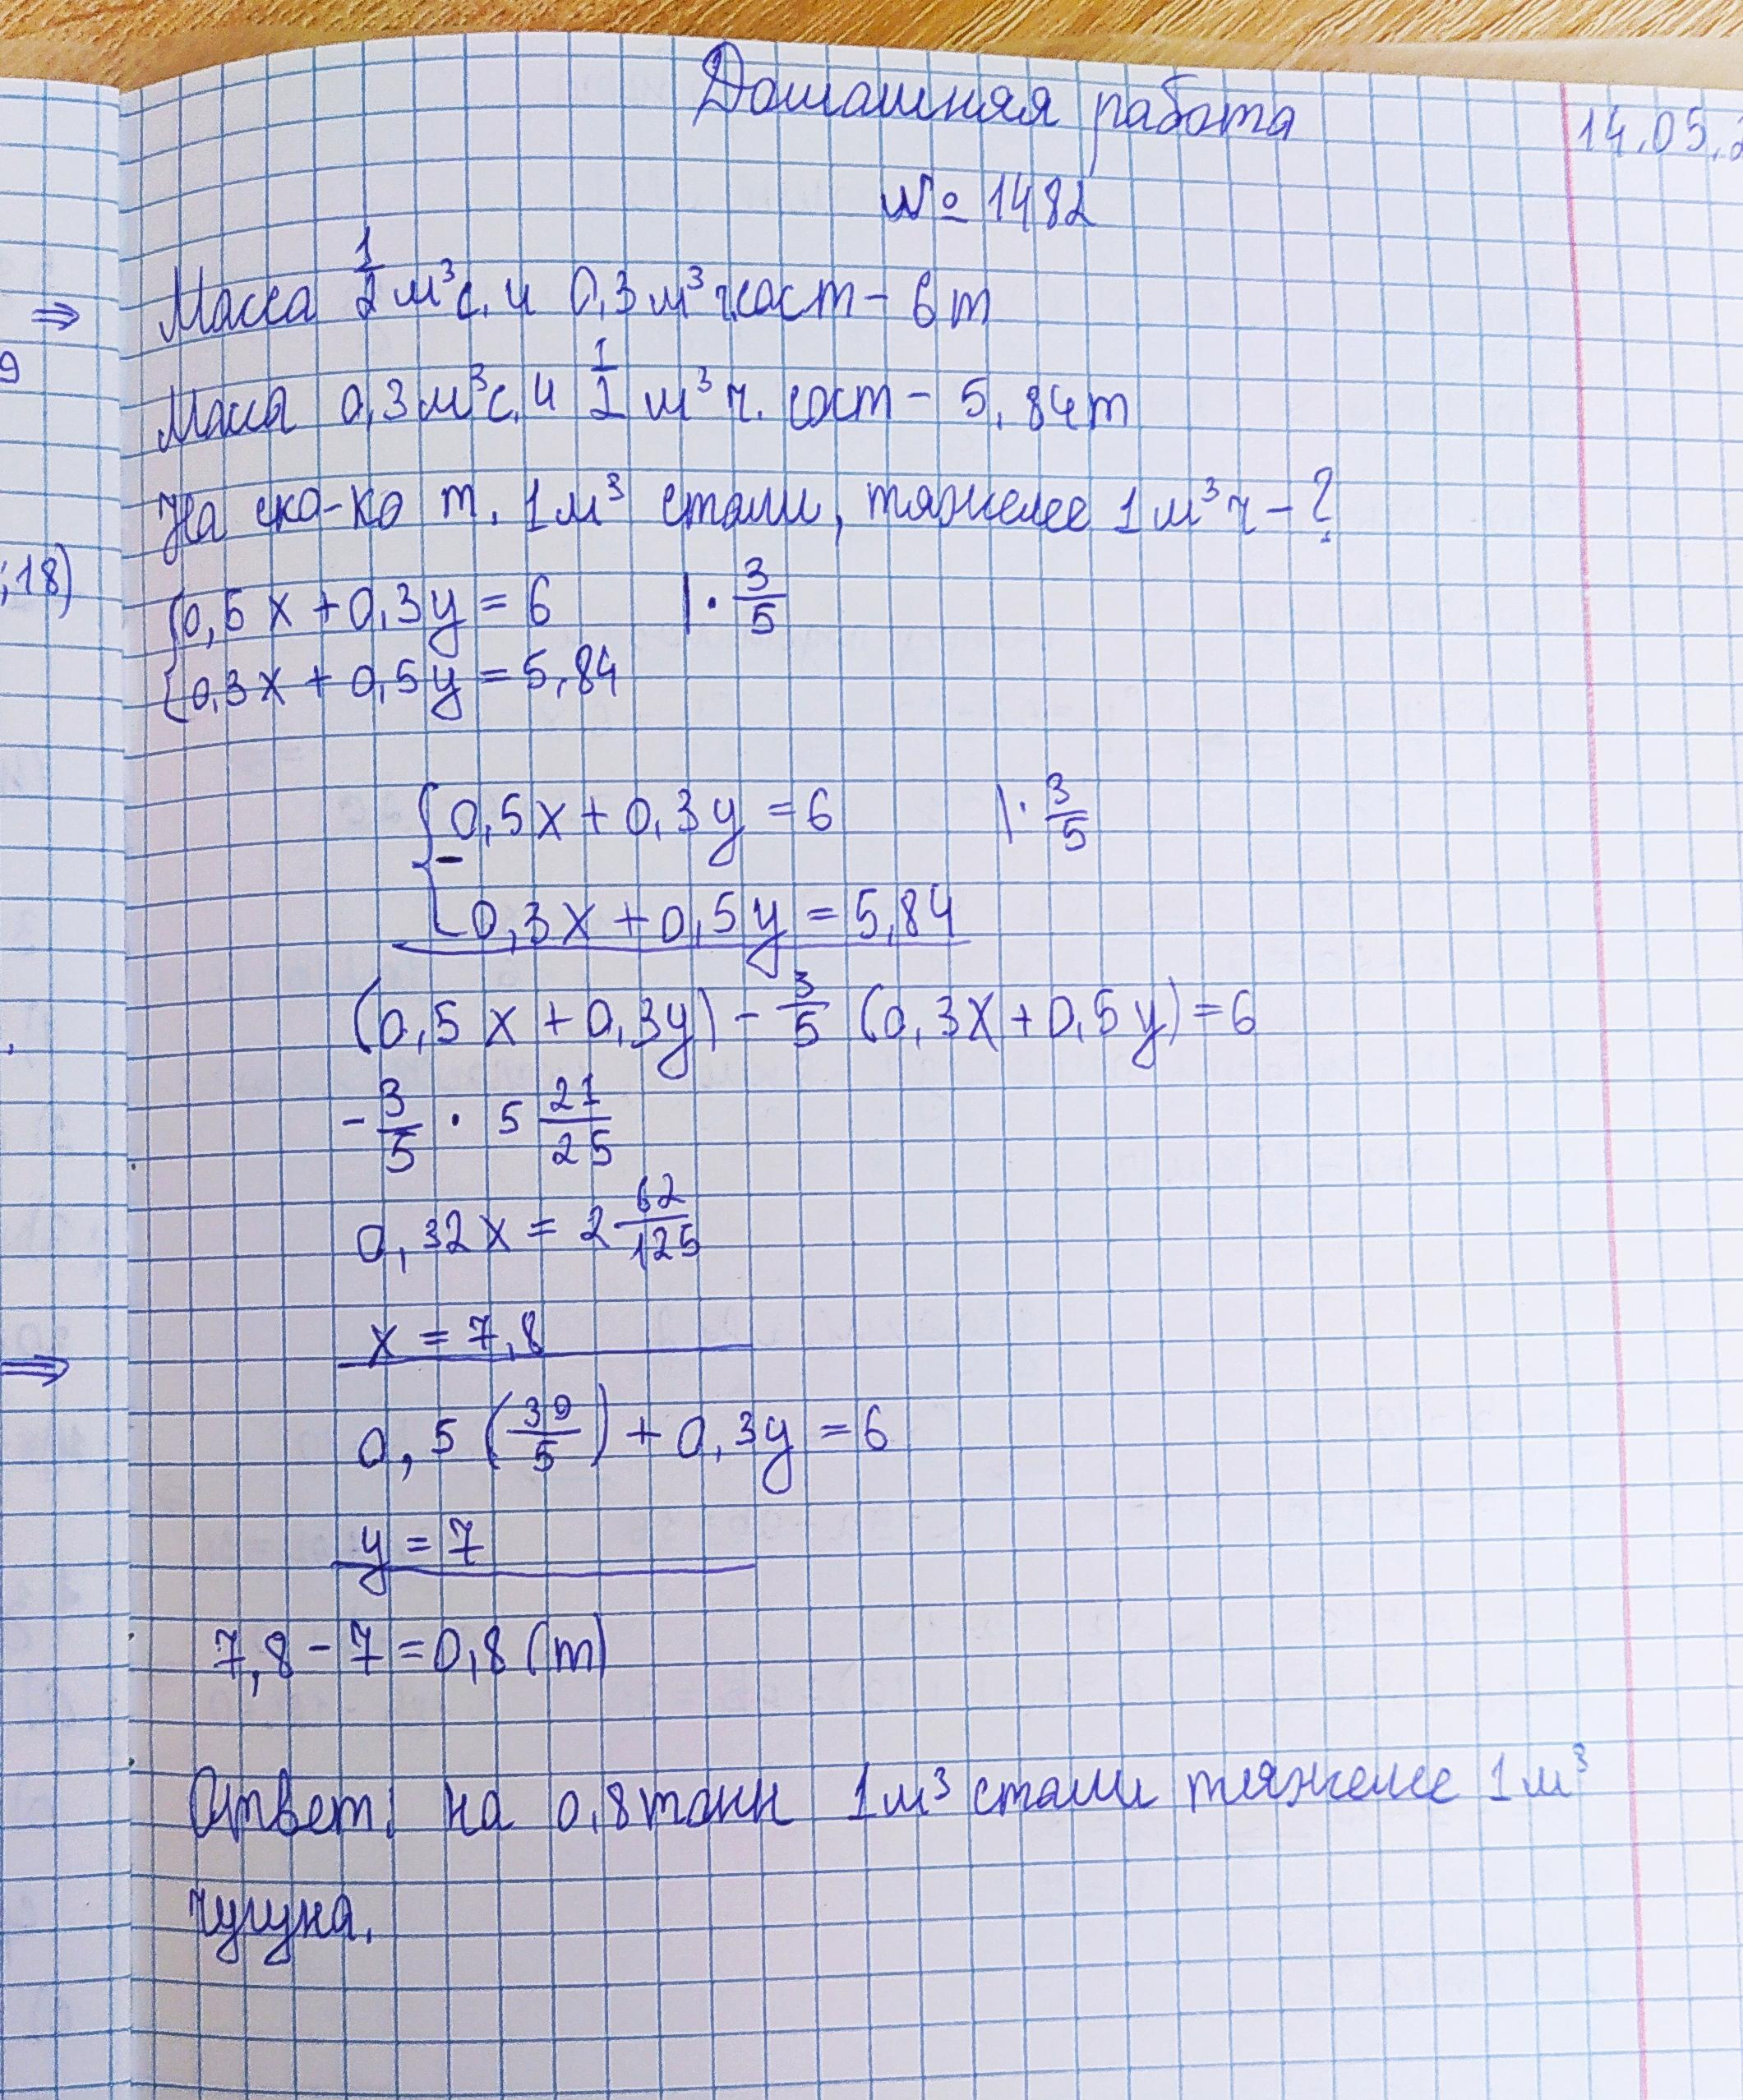 Домашняя работа
14.05.
№ 1482
⇒
Масса 1/2 м³ с. и 0,3 м³ ч. сост - 6 т
9
Масса 0,3 м³ с. и 1/2 м³ ч. сост - 5,84 т
На ско-ко т. 1 м³ стали, тяжелее 1 м³ ч - ?
;18)
{0,5x + 0,3y = 6 | · 3/5
{0,3x + 0,5y = 5,84
{0,5x + 0,3y = 6 | · 3/5
-
{0,3x + 0,5y = 5,84
(0,5x + 0,3y) - 3/5 (0,3x + 0,5y) = 6
- 3/5 · 5 21/25
0,32x = 2 62/125
x = 7,8
⇒
0,5 (39/5) + 0,3y = 6
y = 7
7,8 - 7 = 0,8 (т)
Ответ: на 0,8 тонн 1 м³ стали тяжелее 1 м³
чугуна.